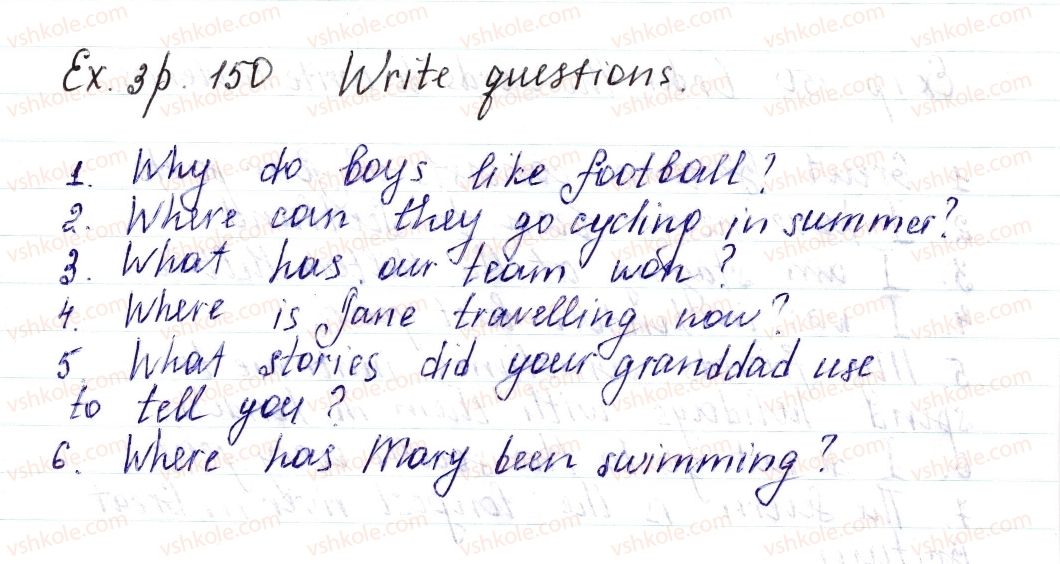 Ex. 3p. 150 Write questions.
1. Why do boys like football?
2. Where can they go cycling in summer?
3. What has our team won?
4. Where is Jane travelling now?
5 What stories did your granddad use
to tell you?
6. Where has Mary been swimming?